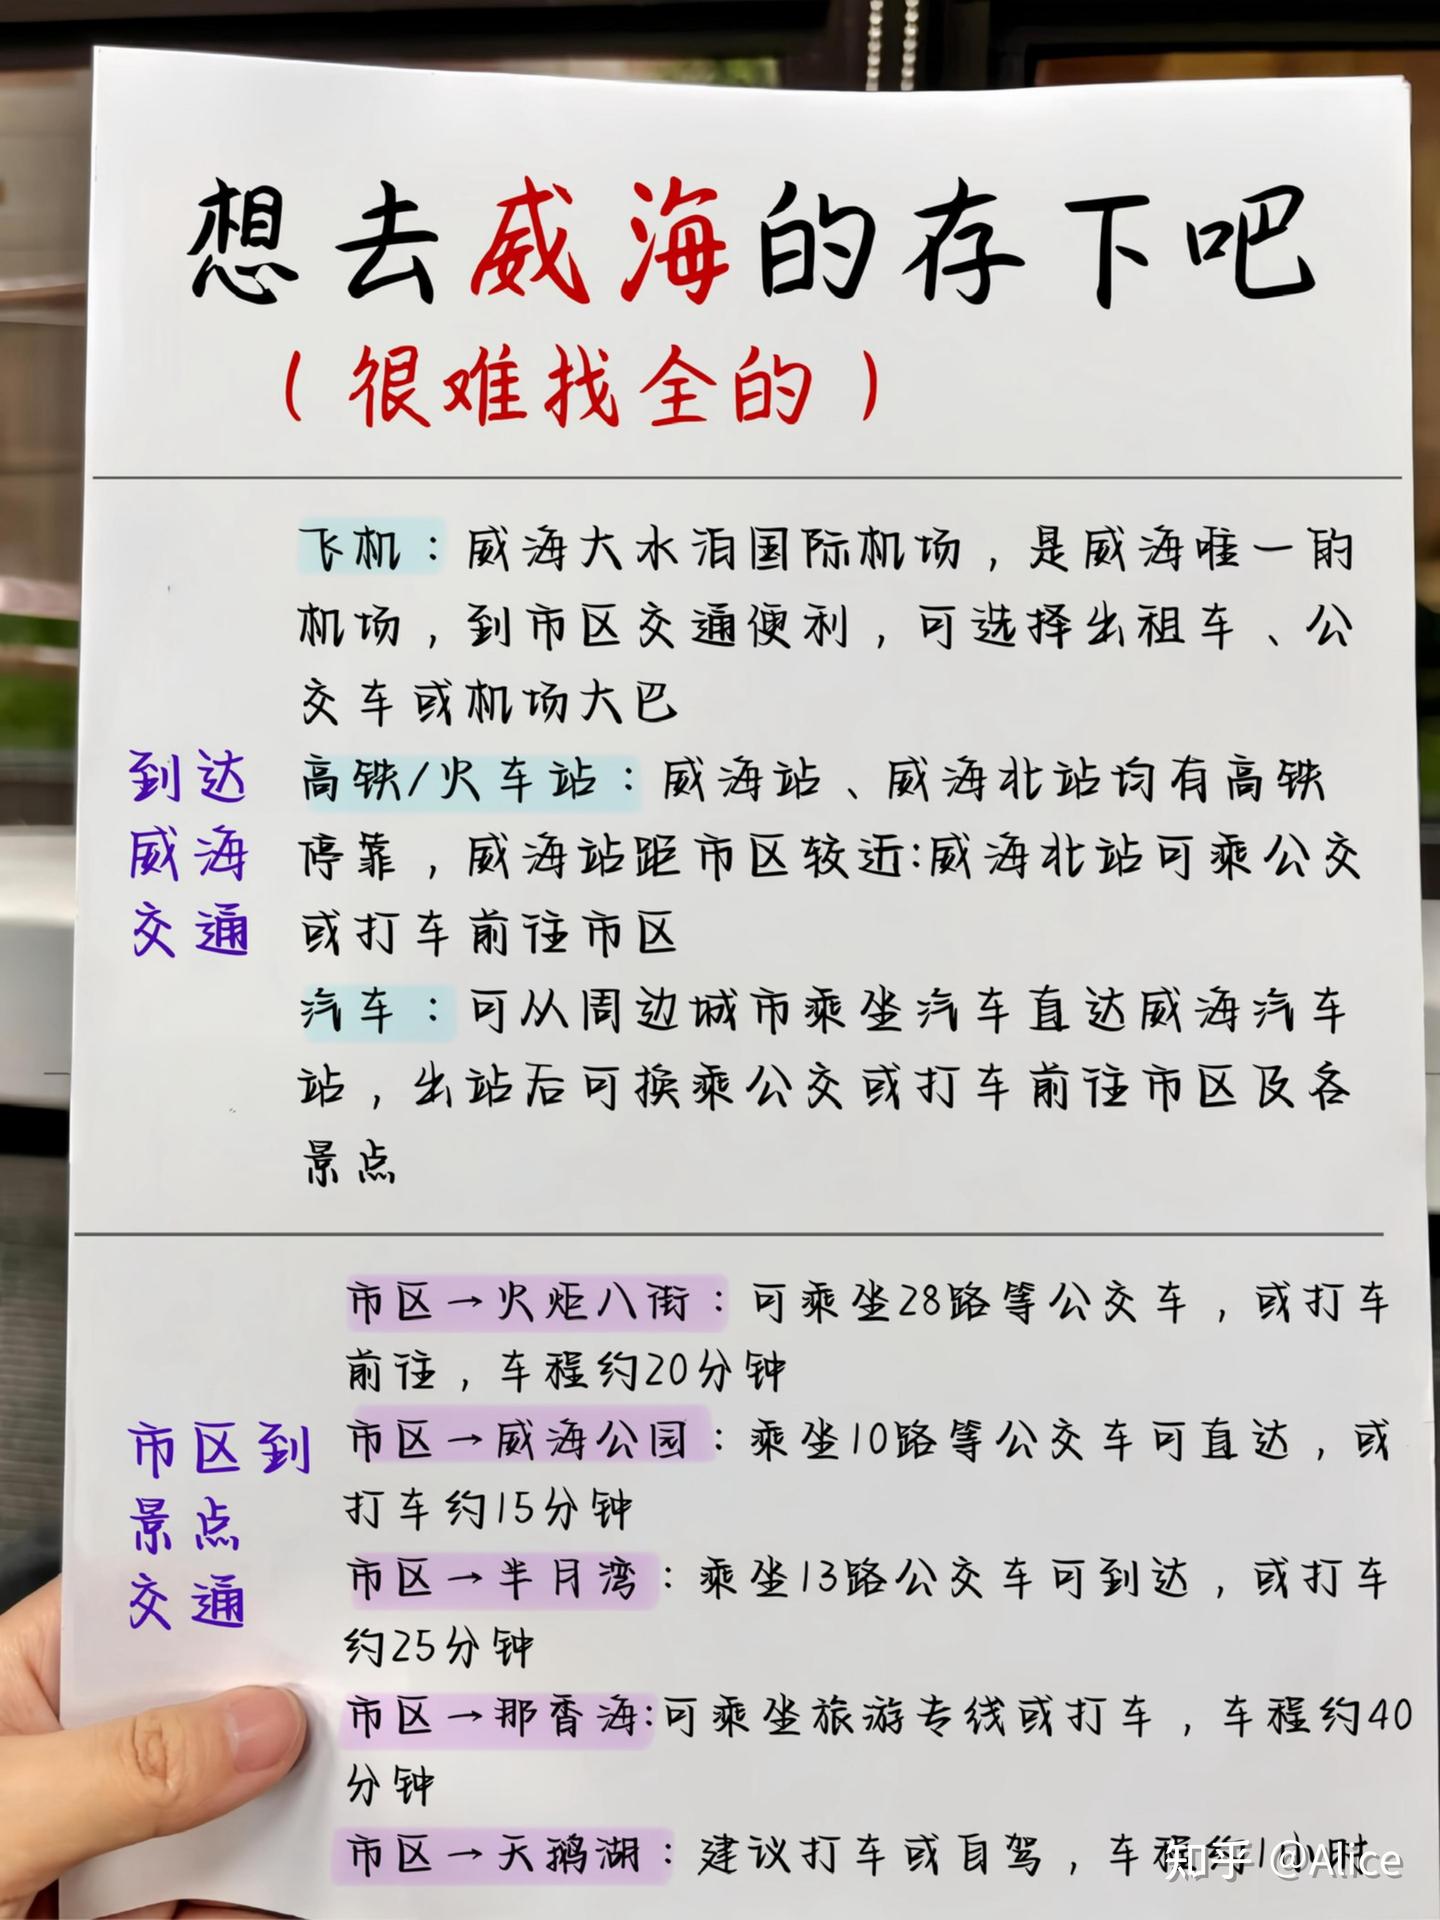 想去威海的存下吧
（很难找全的）
到达
威海
交通
飞机：威海大水泊国际机场，是威海唯一的
机场，到市区交通便利，可选择出租车、公
交车或机场大巴
高铁/火车站：威海站、威海北站均有高铁
停靠，威海站距市区较近:威海北站可乘公交
或打车前往市区
汽车：可从周边城市乘坐汽车直达威海汽车
站，出站后可换乘公交或打车前往市区及各
景点
市区到
景点
交通
市区→火炬八街：可乘坐28路等公交车，或打车
前往，车程约20分钟
市区→威海公园：乘坐10路等公交车可直达，或
打车约15分钟
市区→半月湾：乘坐13路公交车可到达，或打车
约25分钟
市区→那香海:可乘坐旅游专线或打车，车程约40
分钟
市区→天鹅湖：建议打车或自驾，车程约1小时
知乎 @Alice